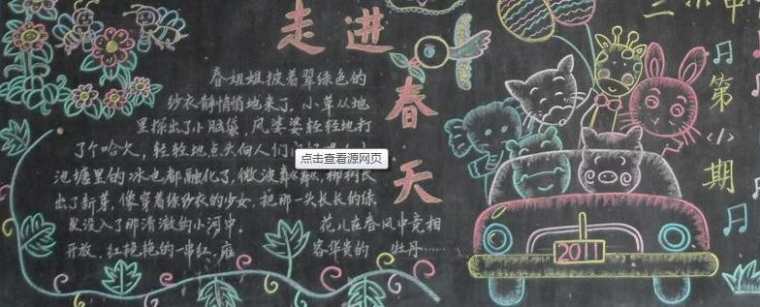 走进
春天
春姐姐披着翠绿色的
纱衣静悄悄地来了，小草从地
里探出了小脑袋，风婆婆轻轻地打
了个哈欠，轻轻地点头向人们
点击查看源网页
池塘里的冰也都融化了，微波
出了新芽，像穿着绿纱衣的少女，把那一头长长的绿
发浸入了那清澈的小河中。 花儿在春风中竞相
开放，红艳艳的一串红，雍
容华贵的 牡丹
第 期
2011